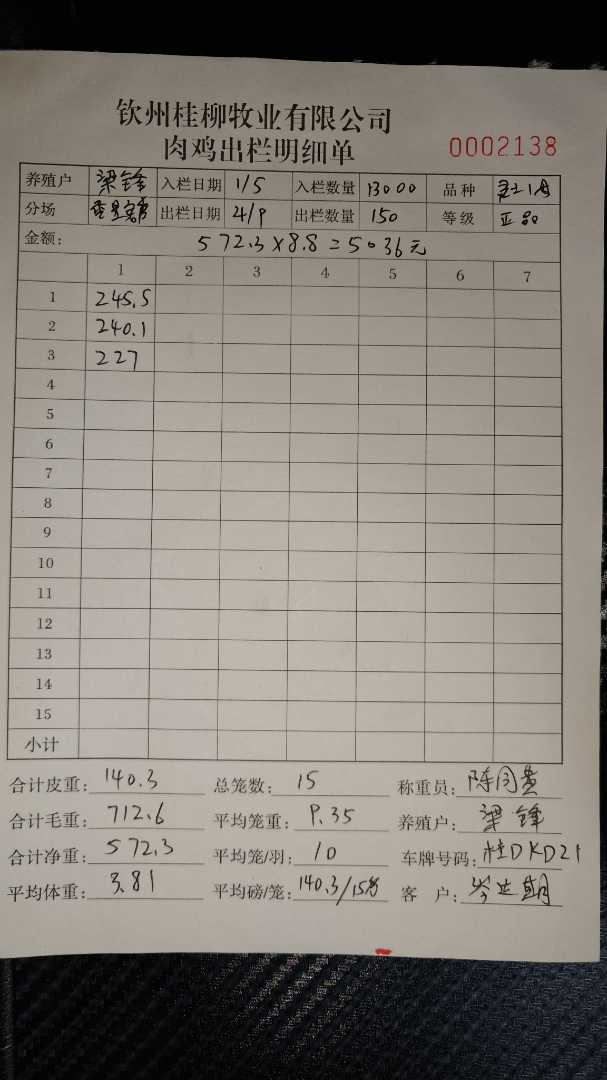 钦州桂柳牧业有限公司
肉鸡出栏明细单 0002138
养殖户 梁锋 入栏日期 1/5 入栏数量 13000 品种
分场 出栏日期 4/9 出栏数量 150 等级 正品
金额: 572.3×8.8=5036元
1 2 3 4 5 6 7
1 245.5
2 240.1
3 227
4
5
6
7
8
9
10
11
12
13
14
15
小计
合计皮重: 140.3 总笼数: 15 称重员: 陈同贵
合计毛重: 712.6 平均笼重: 9.35 养殖户: 梁锋
合计净重: 572.3 平均笼/羽: 10 车牌号码: 桂DKD21
平均体重: 3.81 平均磅/笼: 140.3/15 客户: